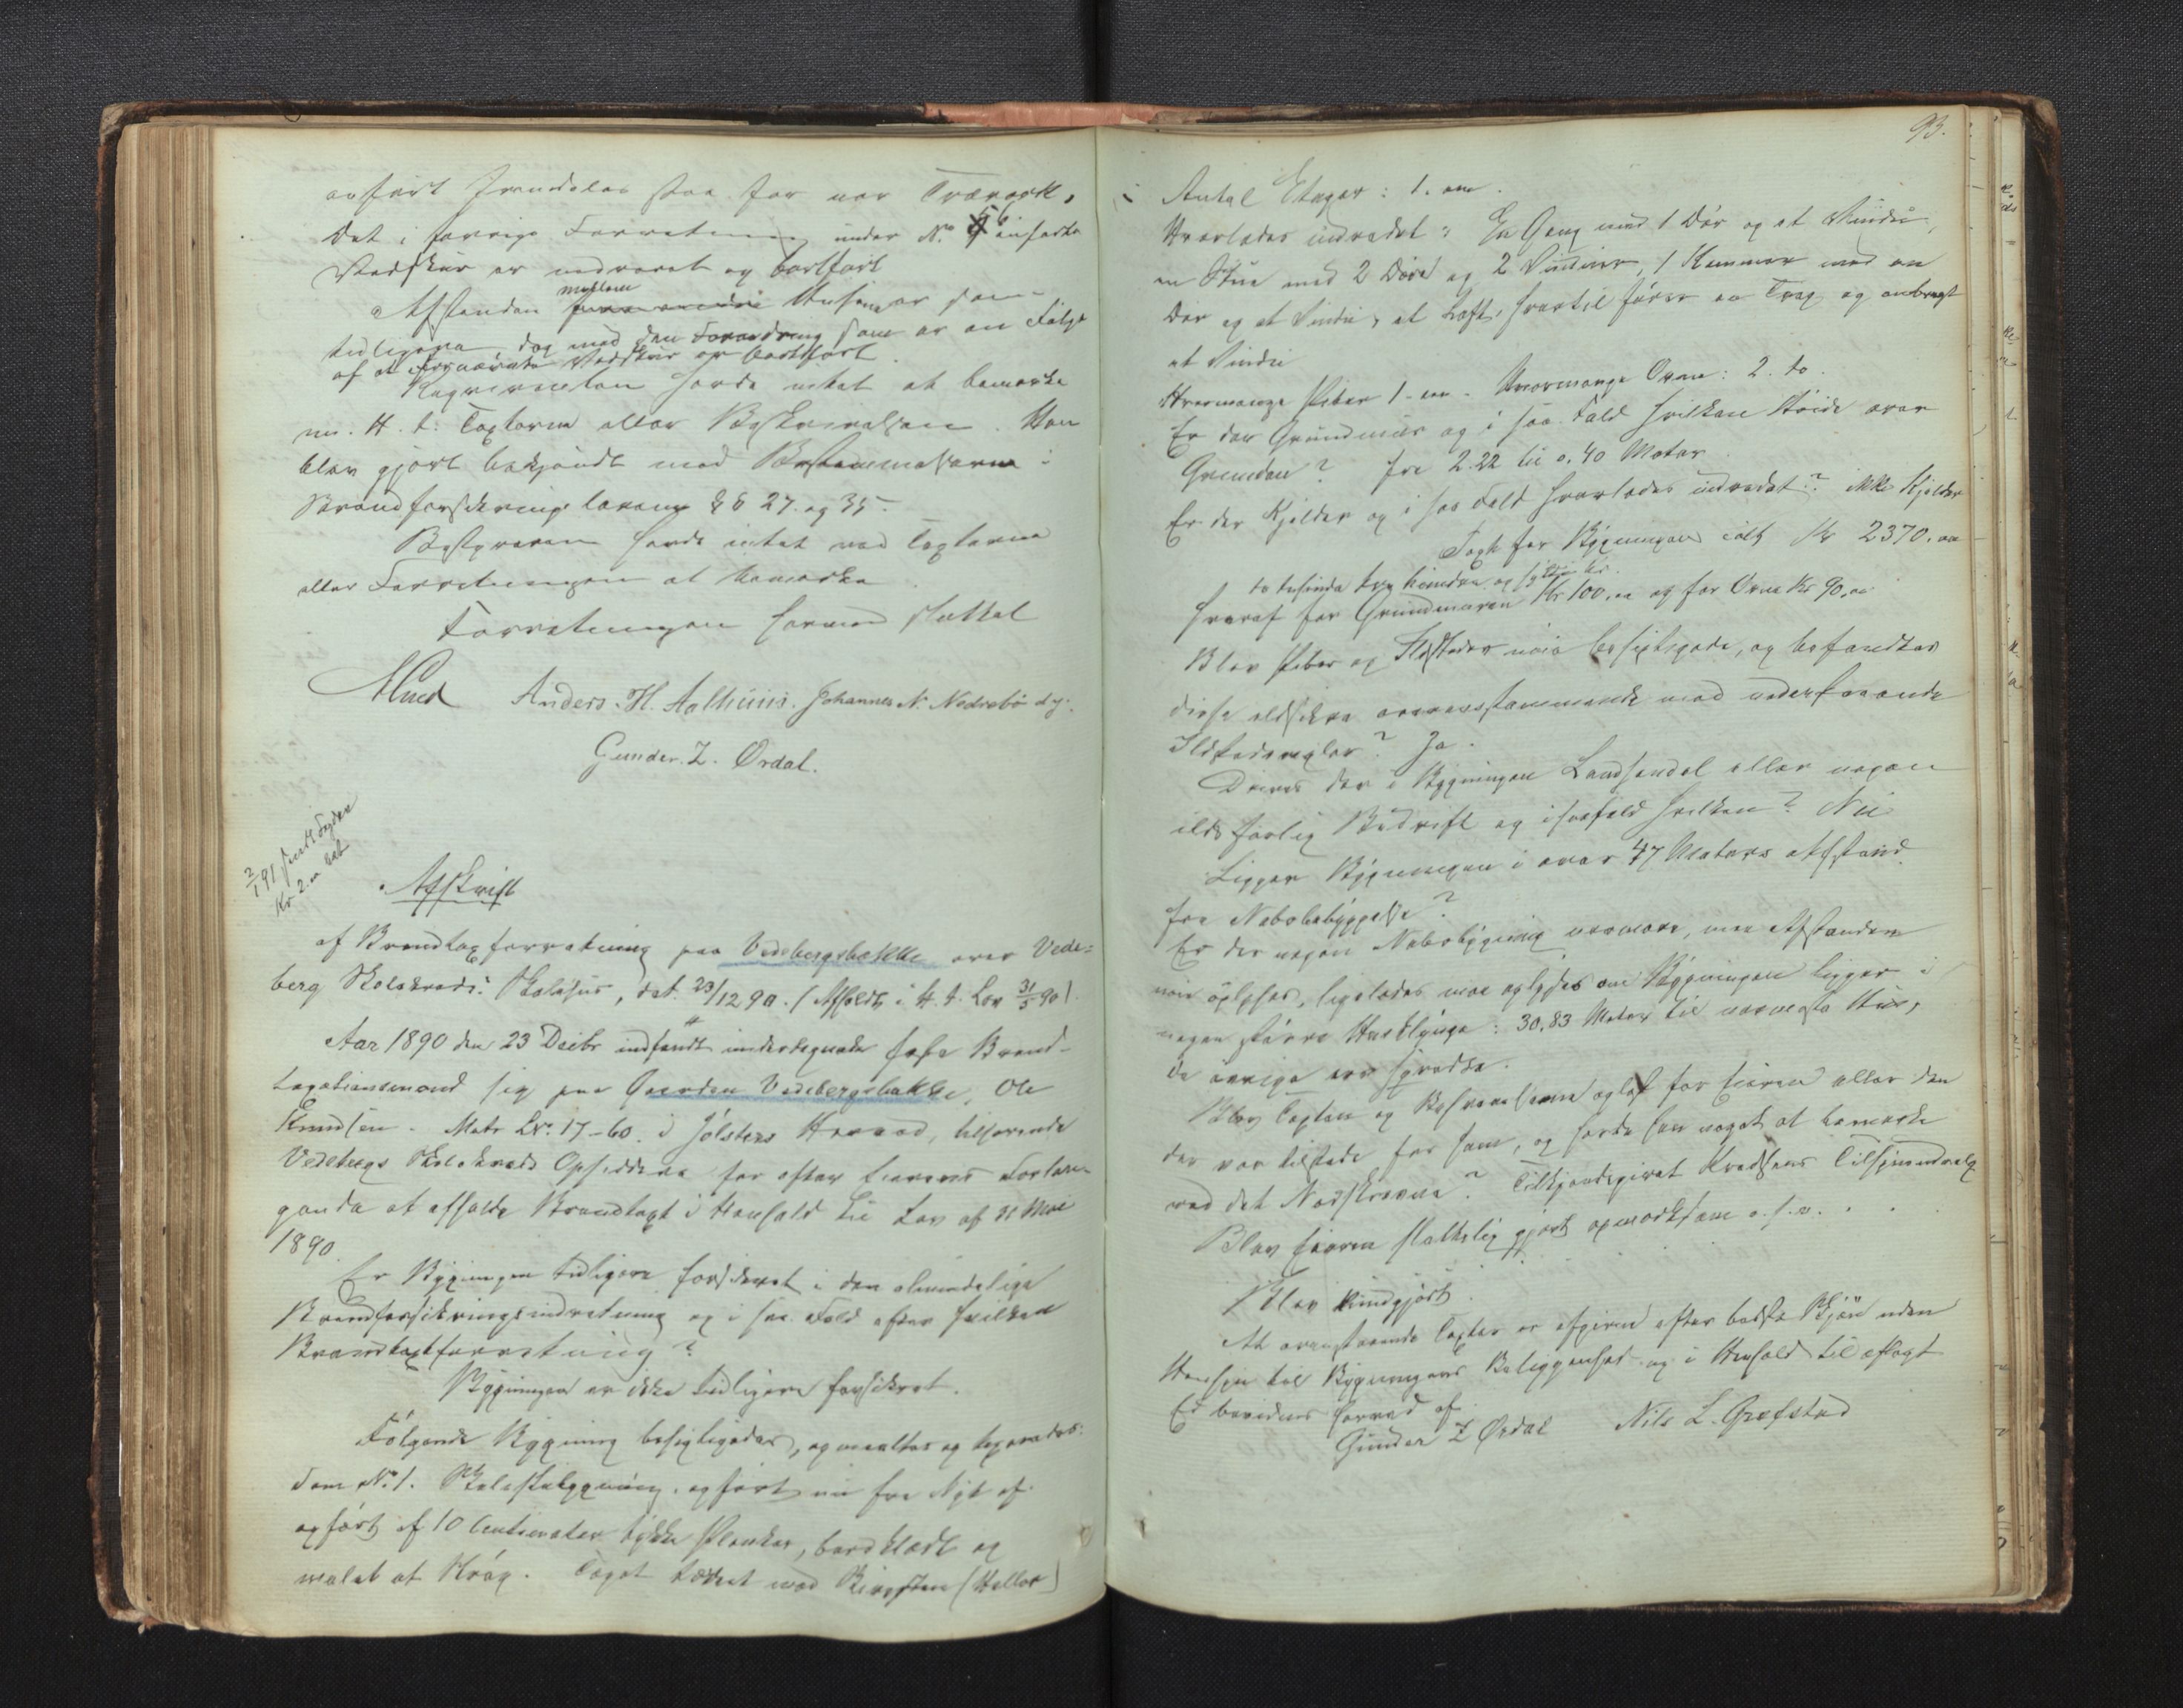 anført Irundelar staa for nær Træverk,
Det i forrige Forretning under No. 5 anførte
Vedskur er nedrevet og bortført
mellem
Afstanden Husene er som
tidligere dog med den Forandring som er en Følge
af at fornævnte Vedskur er bortført.
Requirenten havde intet at bemærke
m. H. t. Taxterne eller Beskrivelsen. Han
blev gjort bekjendt med Bestemmelserne i
Brandforsikringslovens §§ 27 og 35.
Bestyreren havde intet ved Taxterne
eller Forretningen at bemærke.
Forretningen hermed sluttet
Anders. H. Aalhuus. Johannes N. Nedrebø
Gunder. Z. Ørdal.
2/1 91 sendt
Kr. 2.
Afskrift
af Brandtaxtforretning paa Vedebergsbakke over Vede=
berg Skolekreds's Skolehus, dat. 23/12 90. (Afholdt i H. t. Lov 31/5 90).
Aar 1890 den 23 Decbr indfandt undertegnede faste Brand-
taxationsmænd sig paa Gaarden Vedebergsbakke, Ole
Knudsen. Matr. Lr. 17-60. i Jølsters Herred, tilhørende
Vedebergs Skolekreds Opsiddere for efter Eierens Forlan-
gende at afholde Brandtaxt i Henhold til Lov af 31 Mai
1890.
Er Bygningen tidligere forsikret i den almindelige
Brandforsikringsindretning og i saa Fald efter hvilken
Brandtaxtforretning?
Bygningen er ikke tidligere forsikret.
Følgende Bygning besigtigedes, opmaaltes og taxeredes:
Som No. 1. Skolestuebygning, opført nu fra Nyt af
opført af 10 Centimeter tykke Planker, bordklædt og
malet af Strøg. Taget tækket med Bergsten (Heller)
93.
Antal Etager: 1. en.
Hvorledes indredet: En Gang med 1 Dør og et Vindu,
en Stue med 2 Døre og 2 Vinduer, 1 Kammer med en
Dør og et Vindu, et Loft, hvortil fører en Trap og anbragt
et Vindu
Hvormange Piber 1 - en. Hvormange Ovne: 2. to.
Er der Grundmur og i saa Fald hvilken Høide over
Grunden? fra 2.22 til 0.40 Meter.
Er der Kjelder og i saa Fald hvorledes indredet? ikke Kjelder
Taxt for Bygningen ialt Kr 2370.00
to tusinde tre hundre og sytti kr.
hvoraf for Grundmuren Kr. 100.00 og for Ovne Kr 90.00
Blev Piber og Ildsteder nøie besigtigede, og befandtes
disse ildsikre overensstemmende med vedkommende
Ildstedsregler? Ja.
Drives der i Bygningen Landhandel eller nogen
ildsfarlig Bedrift og isaafald hvilken? Nei
Ligger Bygningen i over 47 Meters Afstand
fra Nabobebyggelse?
Er der nogen Nabobygning nærmere, maa Afstanden
nøie oplyses, ligeledes maa oplyses om Bygningen ligger i
nogen større Husklynge: 30,83 Meter til nærmeste Hus,
de øvrige ere spredte.
Blev Taxten og Beskrivelserne oplæst for Eieren eller den
der var tilstede for ham, og havde han noget at bemærke
ved det Nedskrevne? Tilkjendegivet Kredsens Tilsynsudvalg
Blev Eieren skattelig gjort opmærksom o.s.v. . . .
Blev kundgjort.
At ovenstaaende Taxter er afgivne efter bedste Skjøn uden
Hensyn til Bygningens Beliggenhed og i Henhold til aflagt
Ed bevidnes herved af
Gunder Z Ørdal Nils L. Græfstad